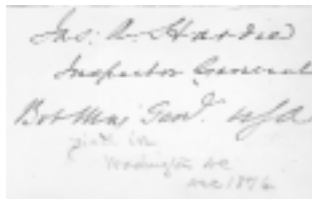 Jas. A. Hardie
Inspector General
Bvt Maj Genl. USA
Washington DC
1876